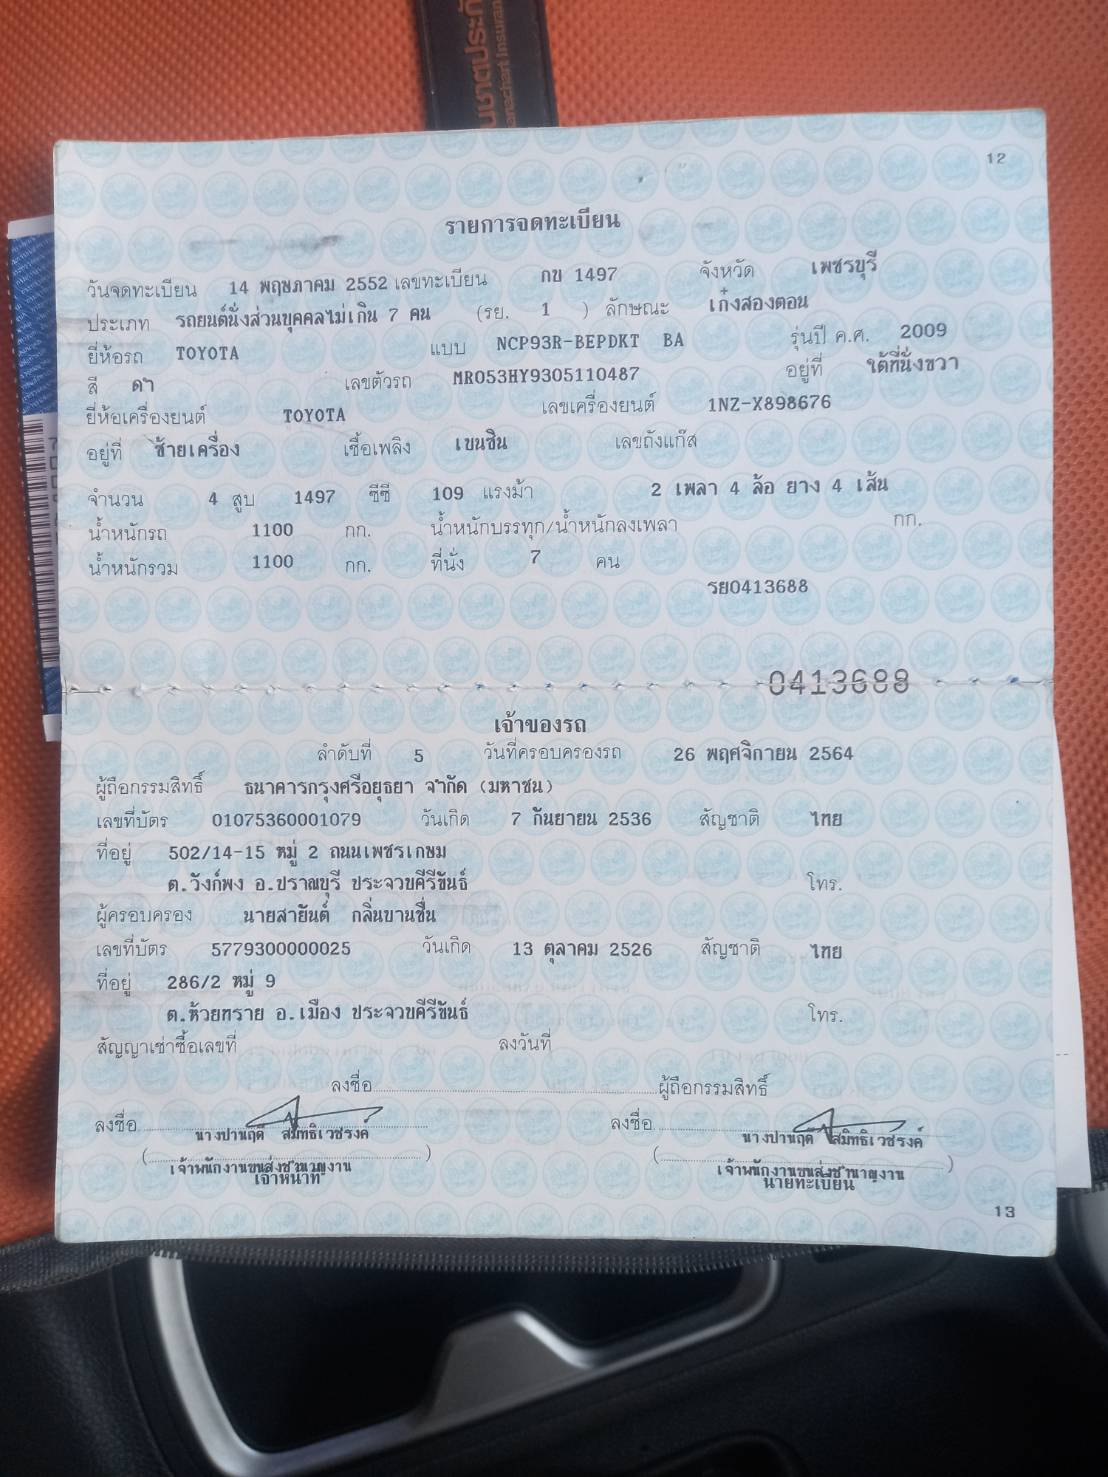 12
รายการจดทะเบียน
วันจดทะเบียน 14 พฤษภาคม 2552 เลขทะเบียน กข 1497 จังหวัด เพชรบุรี
ประเภท รถยนต์นั่งส่วนบุคคลไม่เกิน 7 คน (รย. 1 ) ลักษณะ เก๋งสองตอน
ยี่ห้อรถ TOYOTA แบบ NCP93R-BEPDKT BA รุ่นปี ค.ศ. 2009
สี ดำ เลขตัวรถ MR053HY9305110487 อยู่ที่ ใต้ที่นั่งขวา
ยี่ห้อเครื่องยนต์ TOYOTA เลขเครื่องยนต์ 1NZ-X898676
อยู่ที่ ซ้ายเครื่อง เชื้อเพลิง เบนซิน เลขถังแก๊ส
จำนวน 4 สูบ 1497 ซีซี 109 แรงม้า 2 เพลา 4 ล้อ ยาง 4 เส้น
น้ำหนักรถ 1100 กก. น้ำหนักบรรทุก/น้ำหนักลงเพลา กก.
น้ำหนักรวม 1100 กก. ที่นั่ง 7 คน
รย0413688
0413688
เจ้าของรถ
ลำดับที่ 5 วันที่ครอบครองรถ 26 พฤศจิกายน 2564
ผู้ถือกรรมสิทธิ์ ธนาคารกรุงศรีอยุธยา จำกัด (มหาชน)
เลขที่บัตร 01075360001079 วันเกิด 7 กันยายน 2536 สัญชาติ ไทย
ที่อยู่ 502/14-15 หมู่ 2 ถนนเพชรเกษม
ต.วังก์พง อ.ปราณบุรี ประจวบคีรีขันธ์ โทร.
ผู้ครอบครอง นายสายันต์ กลิ่นบานชื่น
เลขที่บัตร 5779300000025 วันเกิด 13 ตุลาคม 2526 สัญชาติ ไทย
ที่อยู่ 286/2 หมู่ 9
ต.ห้วยทราย อ.เมือง ประจวบคีรีขันธ์ โทร.
สัญญาเช่าซื้อเลขที่ ลงวันที่
ลงชื่อ ผู้ถือกรรมสิทธิ์
ลงชื่อ ลงชื่อ
นางปานฤดี สมิทธิเวชรงค์ นางปานฤดี สมิทธิเวชรงค์
( ) ( )
เจ้าพนักงานขนส่งชำนาญงาน เจ้าพนักงานขนส่งชำนาญงาน
เจ้าหน้าที่ นายทะเบียน
13